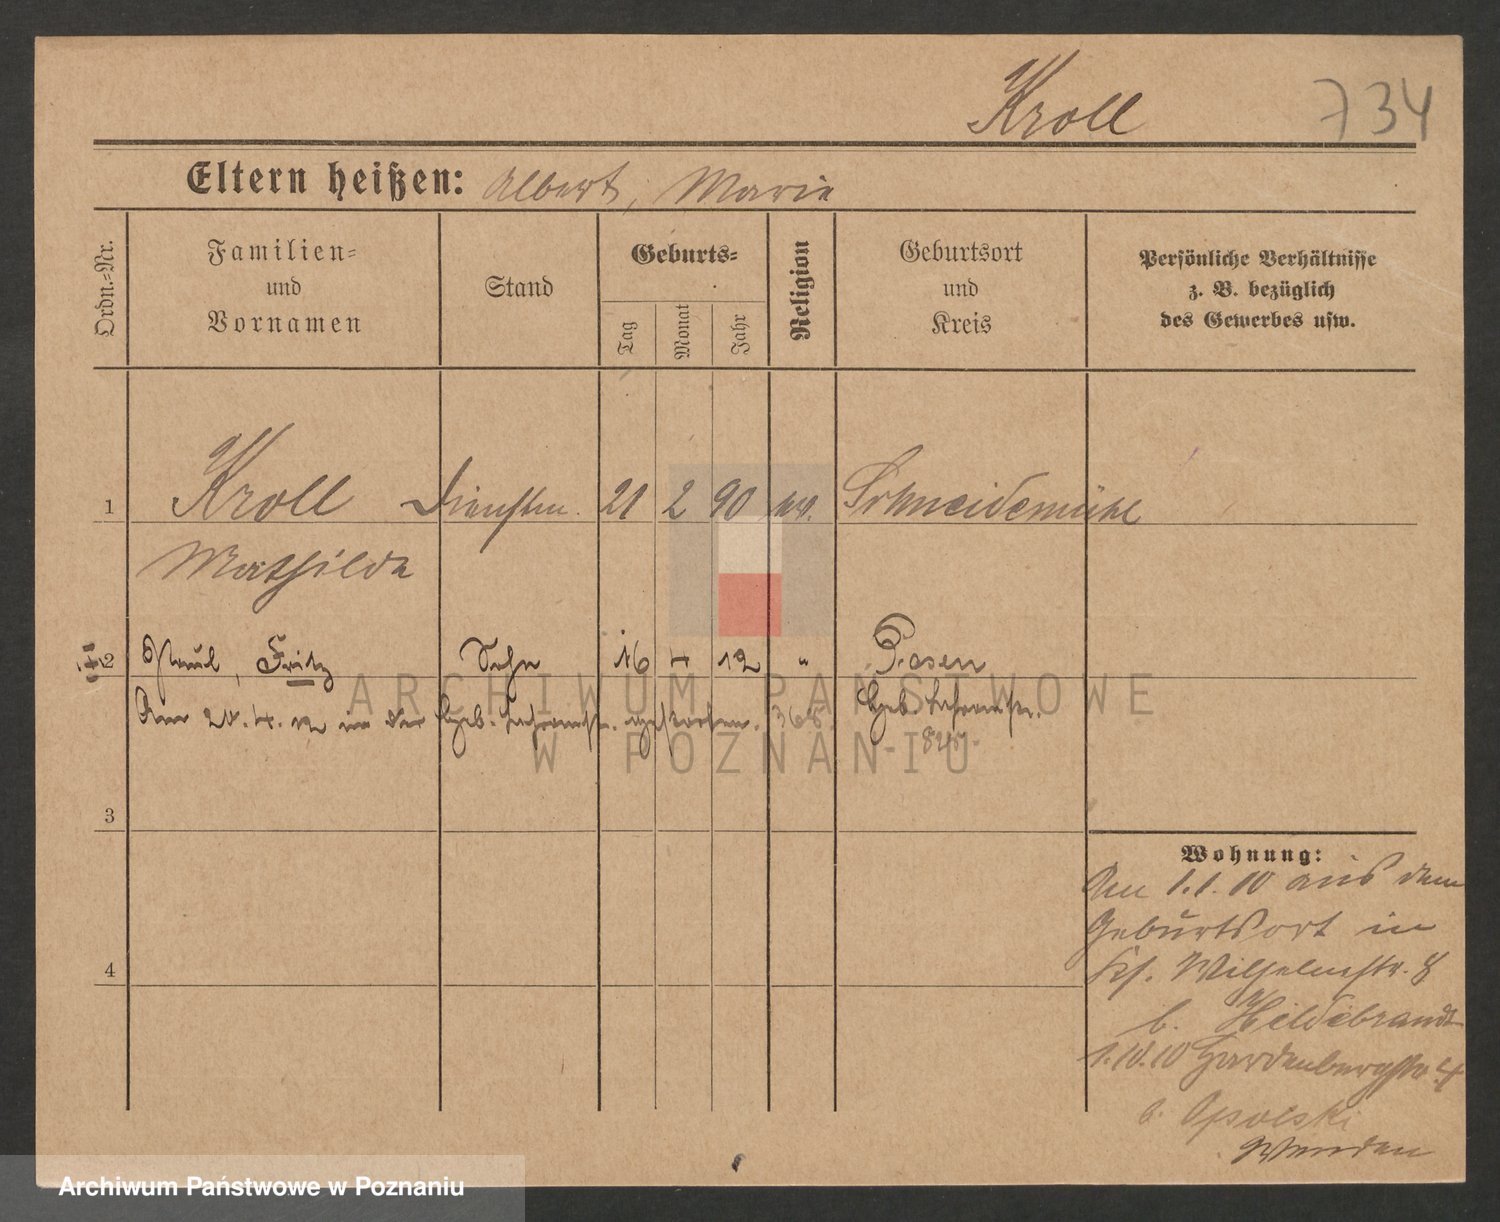 Kroll 734
Eltern heißen: Albert, Marie
Ordn.-Nr.
Familien-
und
Vornamen
Stand
Geburts-
Tag
Monat
Jahr
Religion
Geburtsort
und
Kreis
Persönliche Verhältnisse
z. B. bezüglich
des Gewerbes usw.
1 Kroll Dienstm. 21 2 90 Schneidemühl
Mathilde
2 Paul, Fritz Sohn 16 4 12 " Posen
Am 4. 12 in der Geb. gestorben.
3
4
Wohnung:
Am 1.1.10 aus dem
Geburtsort in
Wilhelmstr. 8
b. Hildebrandt
1.10.10 Hardenbergstr. 4
b. Opolski
Wenden
ARCHIWUM PAŃSTWOWE
W POZNANIU
Archiwum Państwowe w Poznaniu